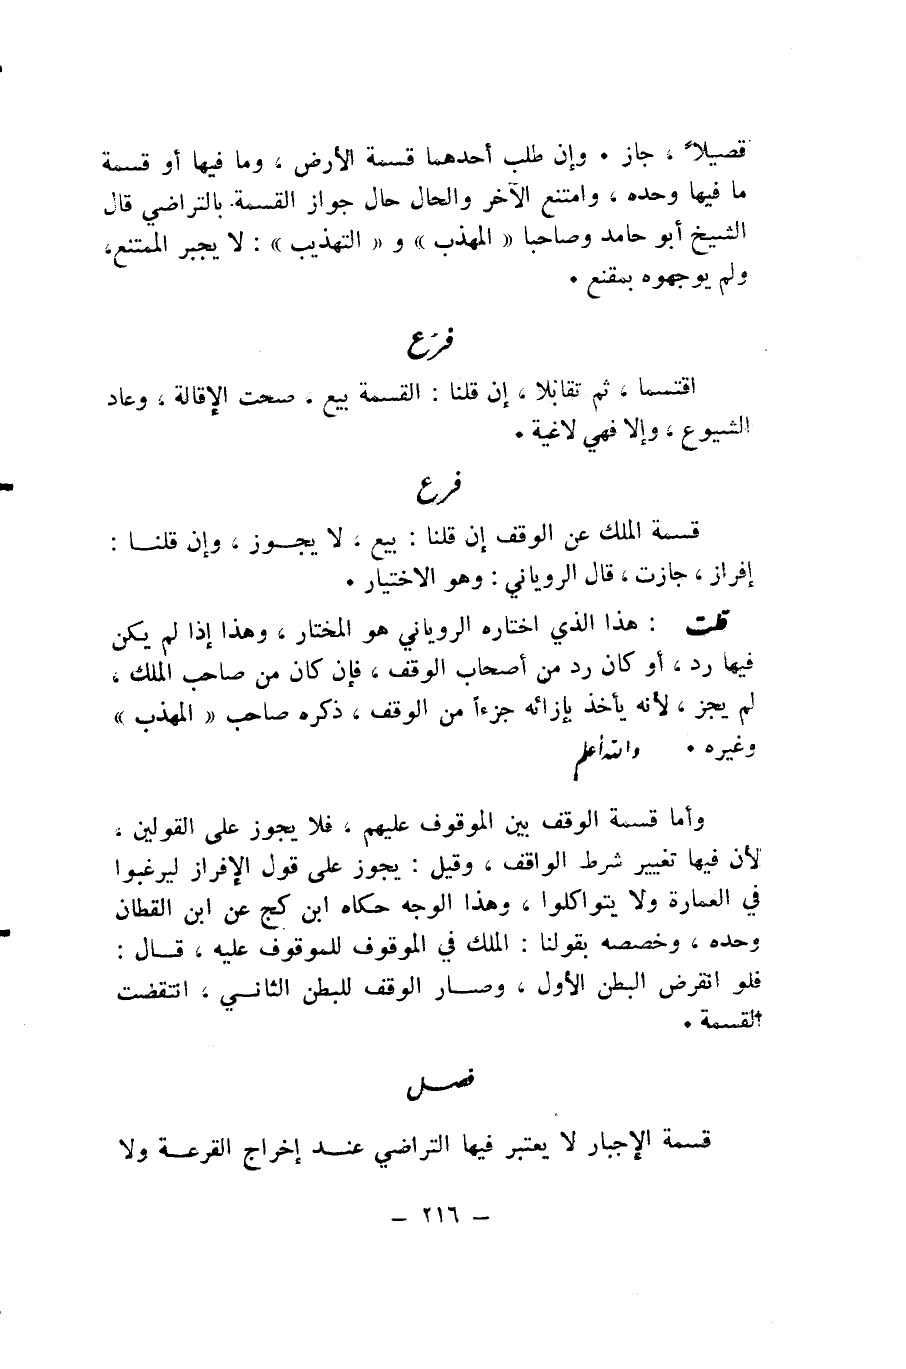 قصيلاً ، جاز ٠ وإن طلب أحدهما قسمة الأرض ، وما فيها أو قسمة
ما فيها وحده ، وامتنع الآخر والحال حال جواز القسمة بالتراضي قال
الشيخ أبو حامد وصاحبا « المهذب » و « التهذيب » : لا يجبر الممتنع ،
ولم يوجهوه بمقنع ٠
فرع
اقتسما ، ثم تقابلا ، إن قلنا : القسمة بيع ، صحت الإقالة ، وعاد
الشيوع ، وإلا فهي لاغية ٠
فرع
قسمة الملك عن الوقف إن قلنا : بيع ، لا يجـــوز ، وإن قلنـــا :
إفراز ، جازت ، قال الروياني : وهو الاختيار ٠
قلت : هذا الذي اختاره الروياني هو المختار ، وهذا إذا لم يكن
فيها رد ، أو كان رد من أصحاب الوقف ، فإن كان من صاحب الملك ،
لم يجز ، لأنه يأخذ بإزائه جزءاً من الوقف ، ذكره صاحب « المهذب »
وغيره ٠ والله أعلم
وأما قسمة الوقف بين الموقوف عليهم ، فلا يجوز على القولين ،
لأن فيها تغيير شرط الواقف ، وقيل : يجوز على قول الإفراز ليرغبوا
في العمارة ولا يتواكلوا ، وهذا الوجه حكاه ابن كج عن ابن القطان
وحده ، وخصصه بقولنا : الملك في الموقوف للموقوف عليه ، قـــال :
فلو انقرض البطن الأول ، وصـــار الوقف للبطن الثانـــي ، انتقضت
القسمة ٠
فصـــل
قسمة الإجبار لا يعتبر فيها التراضي عنـــد إخراج القرعـــة ولا
– ٢١٦ –